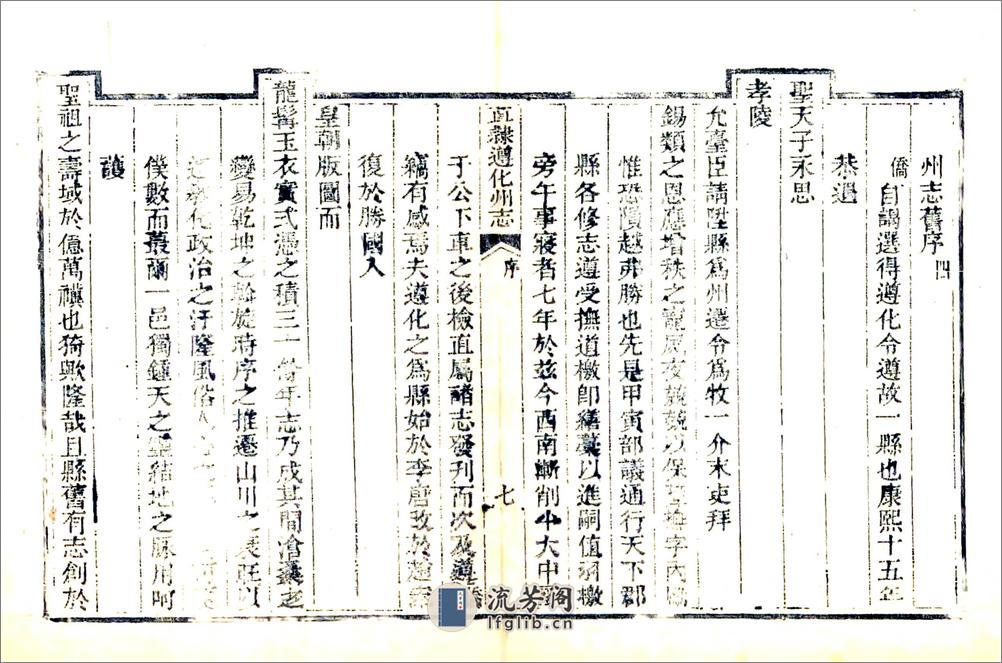 州志舊序 四
僑自謁選得遵化令遵故一縣也康熙十五年
恭遇
聖天子永思
孝陵
允臺臣請陞縣爲州遷令爲牧一介末吏拜
錫類之恩應增秩之寵夙夜兢兢以保
惟恐隕越弗勝也先是甲寅部議通行天下郡
縣各修志遵受撫道檄卽繕藁以進嗣值羽檄
旁午事寢者七年於兹今西南漸削大中
直隸遵化州志 序 七
于公下車之後檢直屬諸志發刊而次及遵
竊有感焉夫遵化之爲縣始於李唐
復於勝國入
皇朝版圖而
龍髯玉衣實式憑之積三一餘年志乃成其間滄桑之
變易乾地之斡旋時序之推遷山川之
教化政治之汙隆風俗
僕數而蕞爾一邑獨鍾天之靈結地之脉用呵
護
聖祖之壽域於億萬禩也猗歟隆哉且縣舊有志創於
流芳阁
lfglib.cn